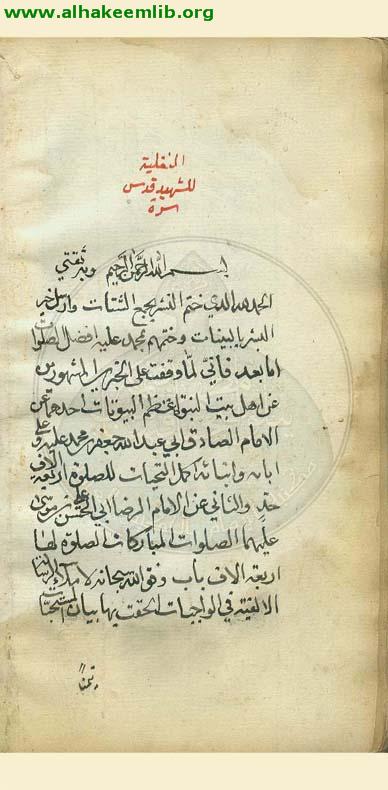 www.alhakeemlib.org
النفلية
للشهيد قدس
سره
بسم الله الرحمن الرحيم وبه ثقتي
الحمد لله الذي ختم التشريع وارسل خير
البشر بالبينات وختمهم بمحمد عليه افضل الصلوات
اما بعد فاني لما وقفت على الخبرين المشهورين
عن اهل بيت النبوة اعظم البيوتات احدهما عن
الامام الصادق ابي عبد الله جعفر بن محمد عليه وعلى
ابائه وابنائه اكمل التحيات للصلوة اربعة الاف
حد والثاني عن الامام الرضا ابي الحسن علي بن موسى
عليهما الصلوات المباركات الصلوة لها
اربعة الاف باب ووفق الله سبحانه لاملاء الرسالة
الالفية في الواجبات الحقت بها بيان المستحبات